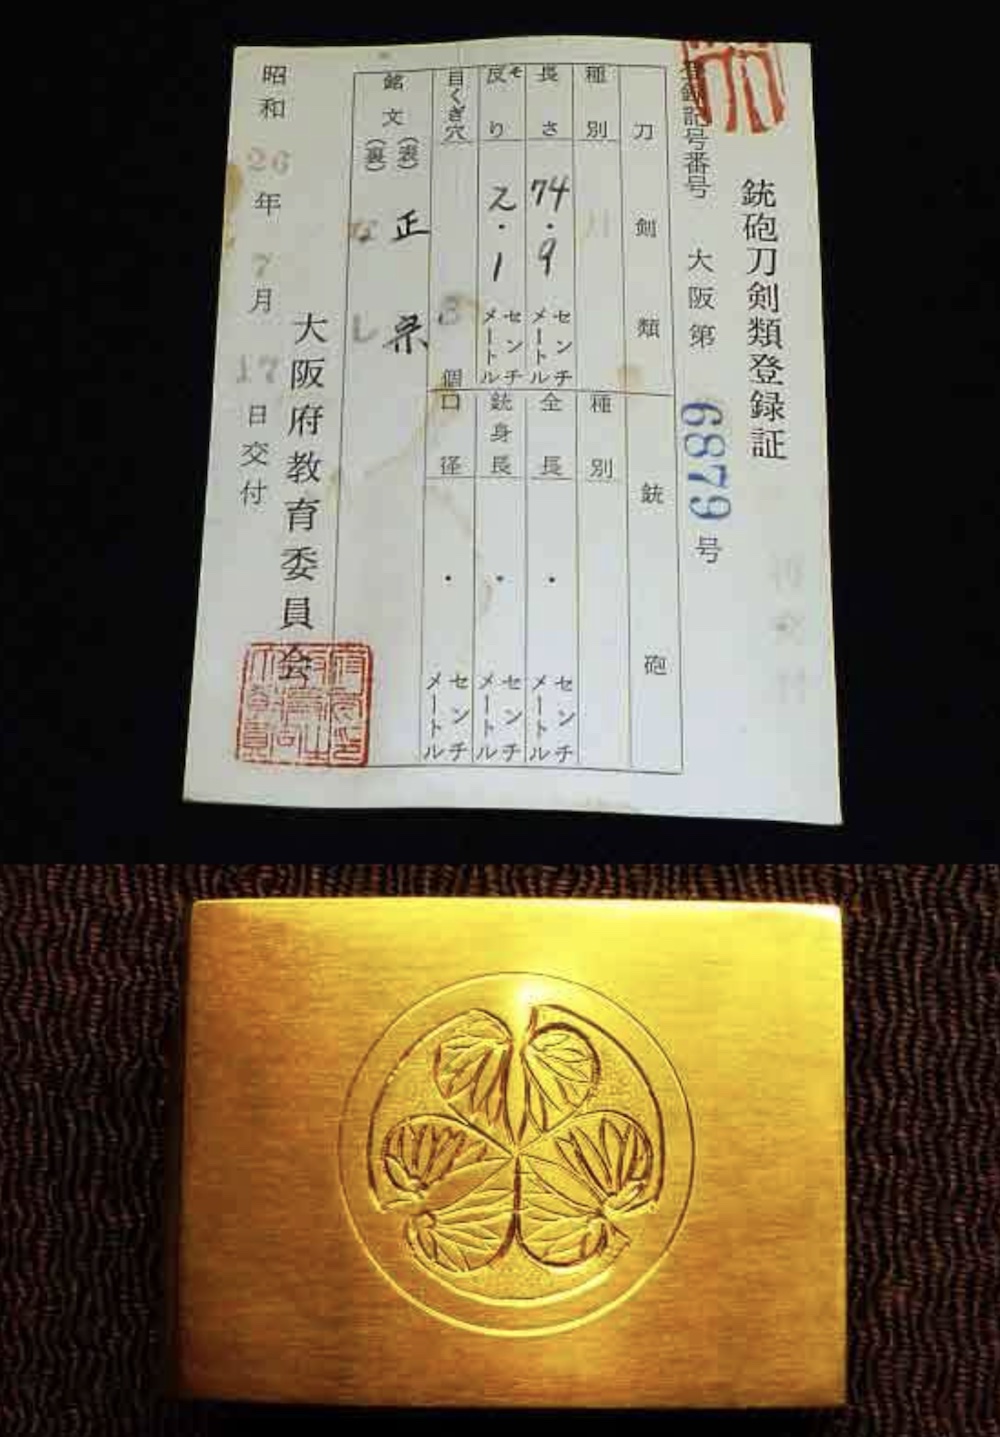 銃砲刀剣類登録証
登録記号番号 大阪第 6879 号
刀剣類
種別
長さ 74.9 センチメートル
反り ソリ 2.1 センチメートル
目くぎ穴 3 個
銘文 (表) 正宗
(裏) なし
銃砲
種別
全長 ・ センチメートル
銃身長 ・ センチメートル
口径 ・ センチメートル
大阪府教育委員会
昭和 26 年 7 月 17 日交付